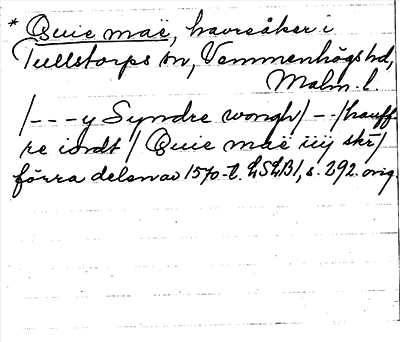 * Quie maë, havreåker i
Tullstorps sn, Vemmenhögs hd,
Malm. l.
/---y Syndre wongh/--/hauff-
re iordt/ Quie maë iiij skr/
förra delen av 1570-t. LSLB1, s. 292. orig.